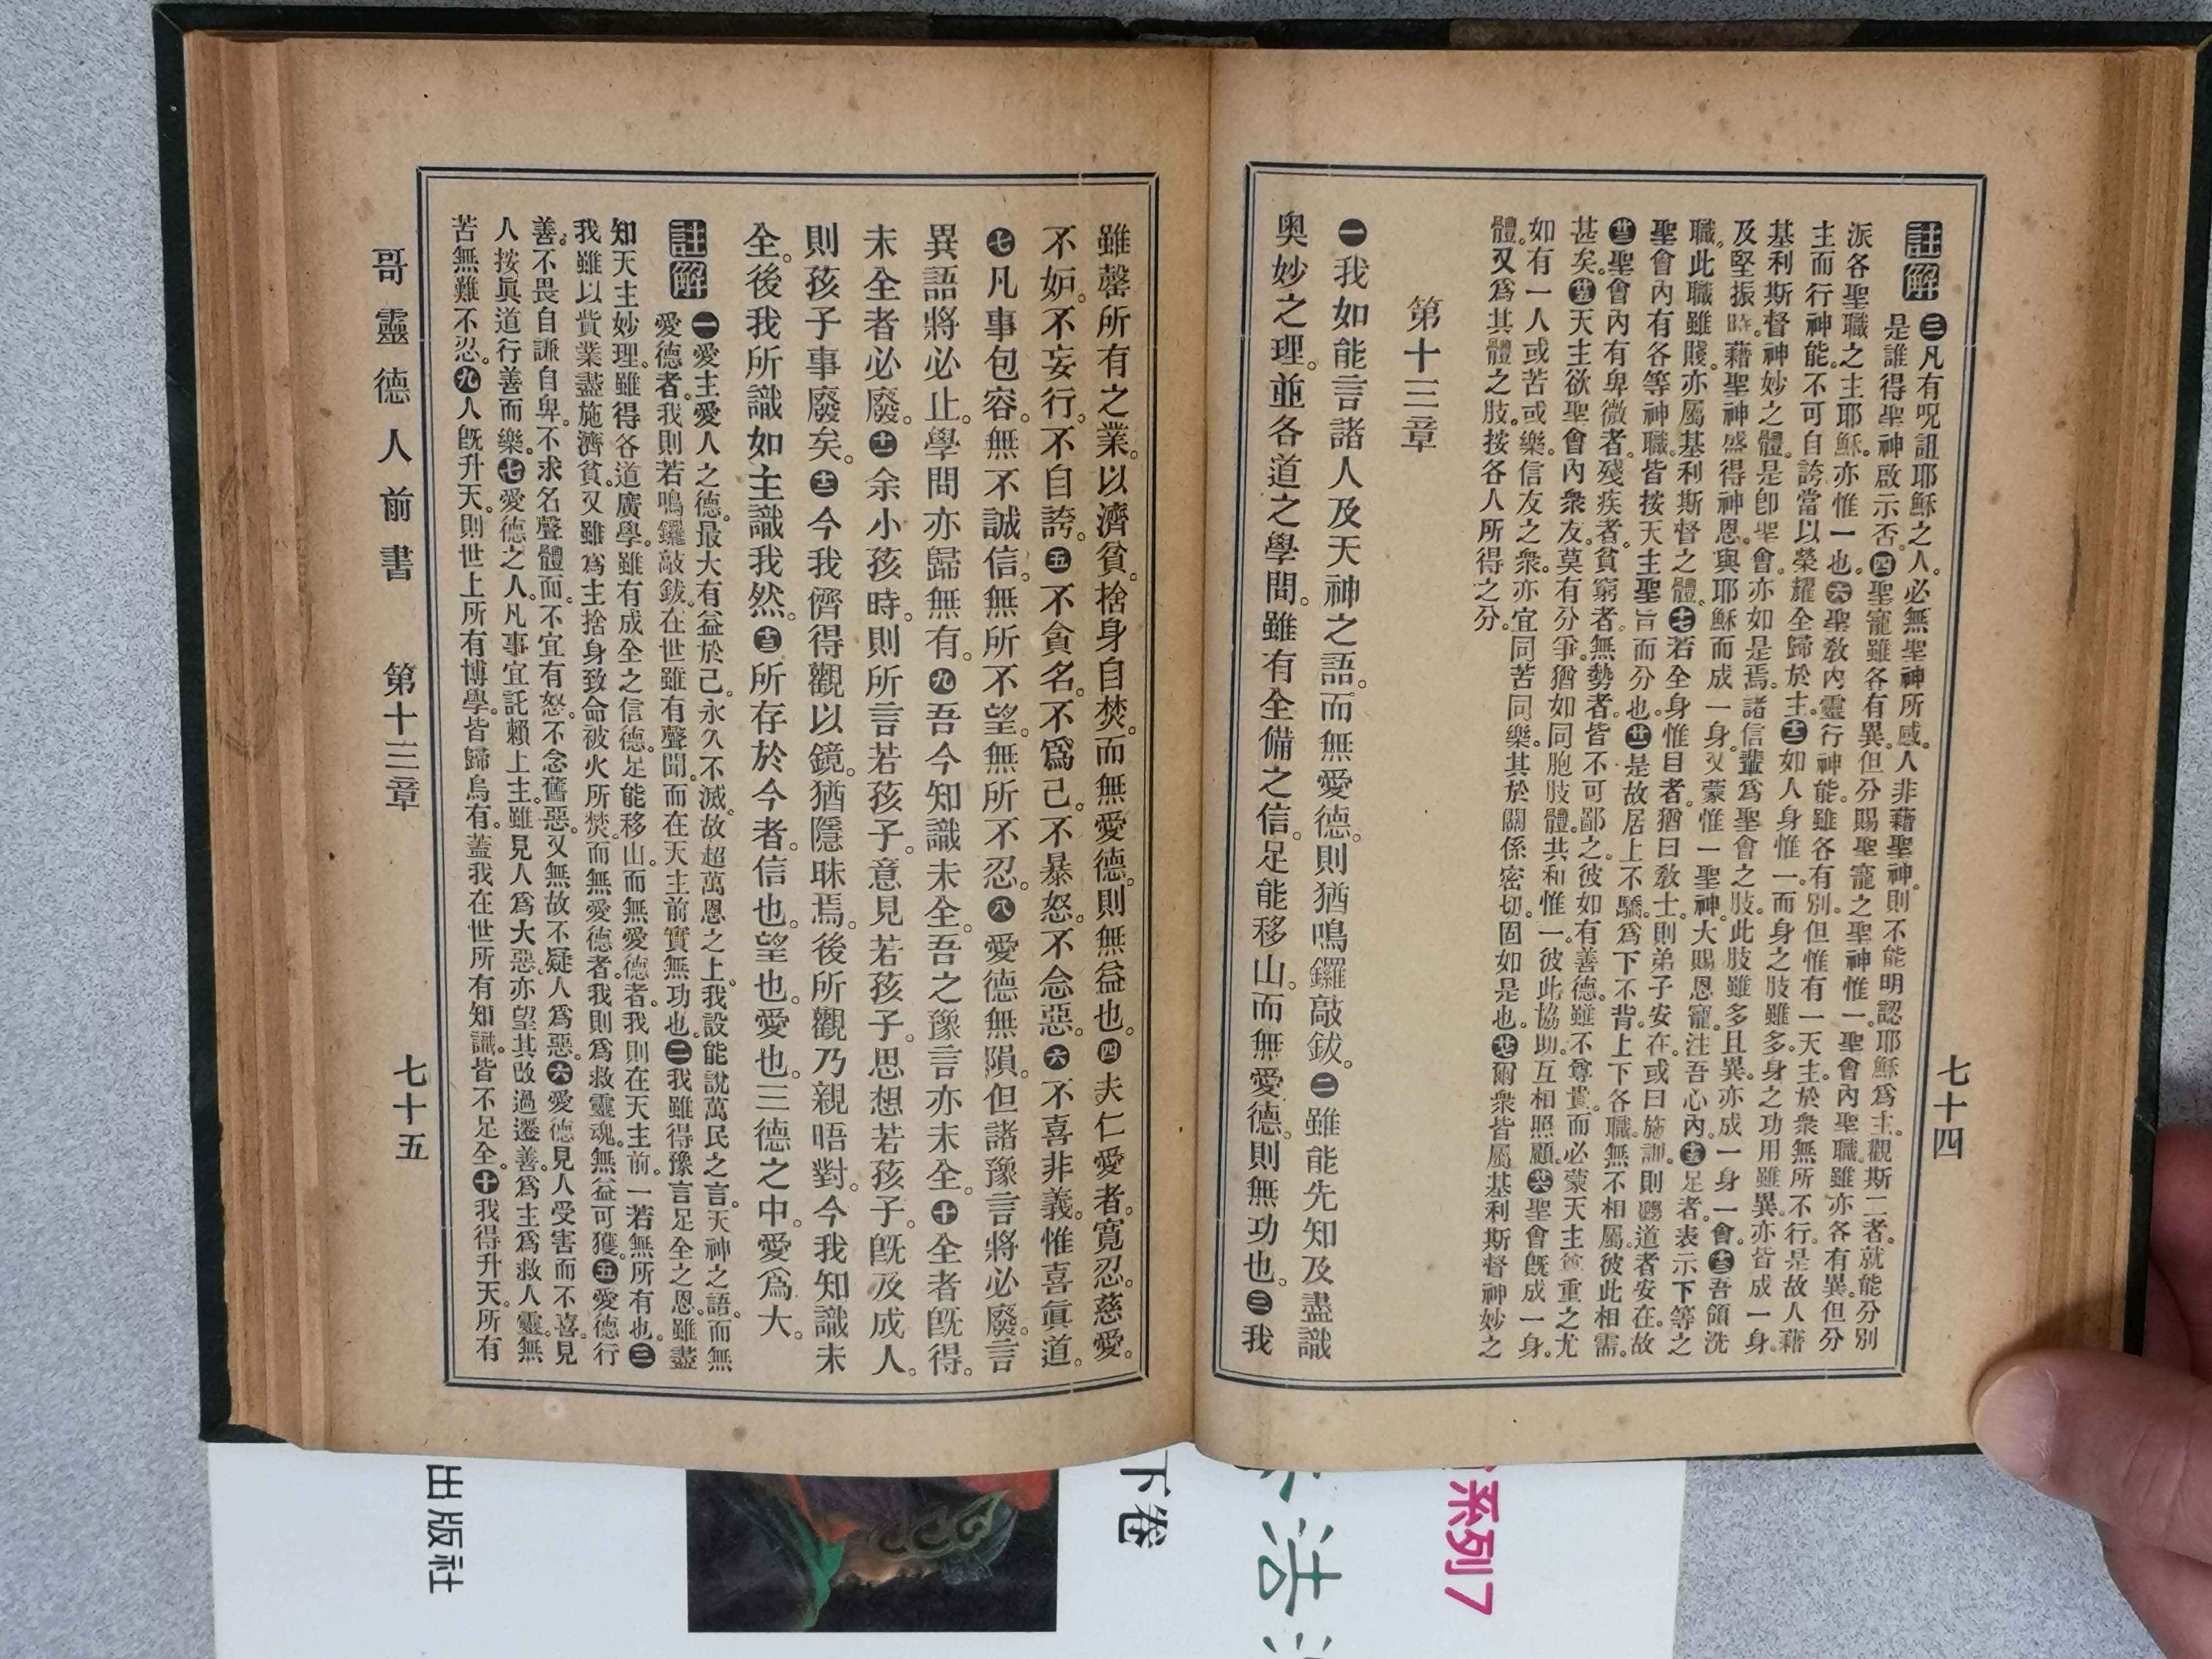 七十四
註解
㊂凡有呪詛耶穌之人。必無聖神所感。人非藉聖神。則不能明認耶穌爲主。觀斯二者。就能分別
是誰得聖神啟示否。㊃聖寵雖各有異。但分賜聖寵之聖神惟一。聖會內聖職雖亦各有異。但分
派各聖職之主耶穌。亦惟一也。㊅聖敎內靈行神能。雖各有別。但惟有一天主。於衆無所不行。是故人藉
主而行神能。不可自誇當以榮耀全歸於主。㊉㊁如人身惟一。而身之肢雖多。身之功用雖異。亦皆成一身。
基利斯督神妙之體。是卽聖會。亦如是焉。諸信輩爲聖會之肢。此肢雖多且異。亦成一身一會。㊉㊂吾領洗
及堅振時。藉聖神盛得神恩。與耶穌而成一身。又蒙惟一聖神。大賜恩寵。注吾心內。㊉㊄足者。表示下等之
職。此職雖賤。亦屬基利斯督之體。㊉㊆若全身惟目者。猶曰敎士。則弟子安在。或曰施訓。則聽道者安在。故
聖會內有各等神職。皆按天主聖旨而分也。㊉㊉是故居上不驕。爲下不背。上下各職。無不相屬。彼此相需。
廿三聖會內有卑微者。殘疾者。貧窮者。無勢者。皆不可鄙之。彼如有善德。雖不尊貴。而必蒙天主尊重之尤
甚矣。廿五天主欲聖會內衆友。莫有分爭。猶如同胞肢體。共和惟一。彼此協助。互相照顧。廿六聖會旣成一身。
如有一人或苦或樂。信友之衆。亦宜同苦同樂。其於關係密切。固如是也。廿七爾衆皆屬基利斯督神妙之
體。又爲其體之肢。按各人所得之分。
第十三章
㊀我如能言諸人及天神之語。而無愛德。則猶鳴鑼敲鈸。㊁雖能先知及盡識
奥妙之理。並各道之學問。雖有全備之信。足能移山。而無愛德。則無功也。㊂我
雖罄所有之業。以濟貧。捨身自焚。而無愛德。則無益也。㊃夫仁愛者。寬忍。慈愛。
不妒。不妄行。不自誇。㊄不貪名。不爲己。不暴怒。不念惡。㊅不喜非義。惟喜眞道。
㊆凡事包容。無不誠信。無所不望。無所不忍。㊇愛德無隕。但諸豫言將必廢。言
異語將必止。學問亦歸無有。㊈吾今知識未全。吾之豫言亦未全。㊉全者旣得。
未全者必廢。十一余小孩時。則所言若孩子。意見若孩子。思想若孩子。旣及成人。
則孩子事廢矣。十二今我儕得觀以鏡。猶隱昧焉。後所觀乃親晤對。今我知識未
全。後我所識如主識我然。十三所存於今者。信也。望也。愛也。三德之中。愛爲大。
註解
㊀愛主愛人之德。最大有益於己。永久不滅。故超萬恩之上。我設能說萬民之言。天神之語。而無
愛德者。我則若鳴鑼敲鈸。在世雖有聲聞。而在天主前。實無功也。㊁我雖得豫言足全之恩。雖盡
知天主妙理。雖得各道廣學。雖有成全之信德。足能移山。而無愛德者。我則在天主前。一若無所有也。㊂
我雖以貲業盡施濟貧。又雖爲主捨身致命被火所焚。而無愛德者。我則爲救靈魂。無益可獲。㊄愛德行
善。不畏自謙自卑。不求名聲體面。不宜有怒。不念舊惡。又無故不疑人爲惡。㊅愛德見人受害而不喜。見
人按眞道行善而樂。㊆愛德之人。凡事宜託賴上主。雖見人爲大惡。亦望其改過遷善。爲主爲救人靈。無
苦無難不忍。㊈人旣升天。則世上所有博學。皆歸烏有。蓋我在世所有知識。皆不足全。㊉我得升天。所有
哥靈德人前書 第十三章 七十五
系列7
下卷
出版社